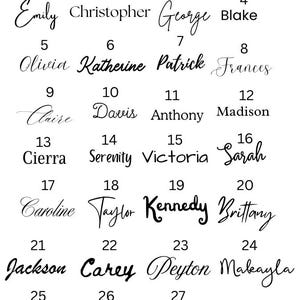 4
Emily Christopher George Blake
5 6 7 8
Olivia Katherine Patrick Frances
9 10 11 12
Claire Davis Anthony Madison
13 14 15 16
Cierra Serenity Victoria Sarah
17 18 19 20
Caroline Taylor Kennedy Brittany
21 22 23 24
Jackson Carey Peyton Makayla
25 26 27